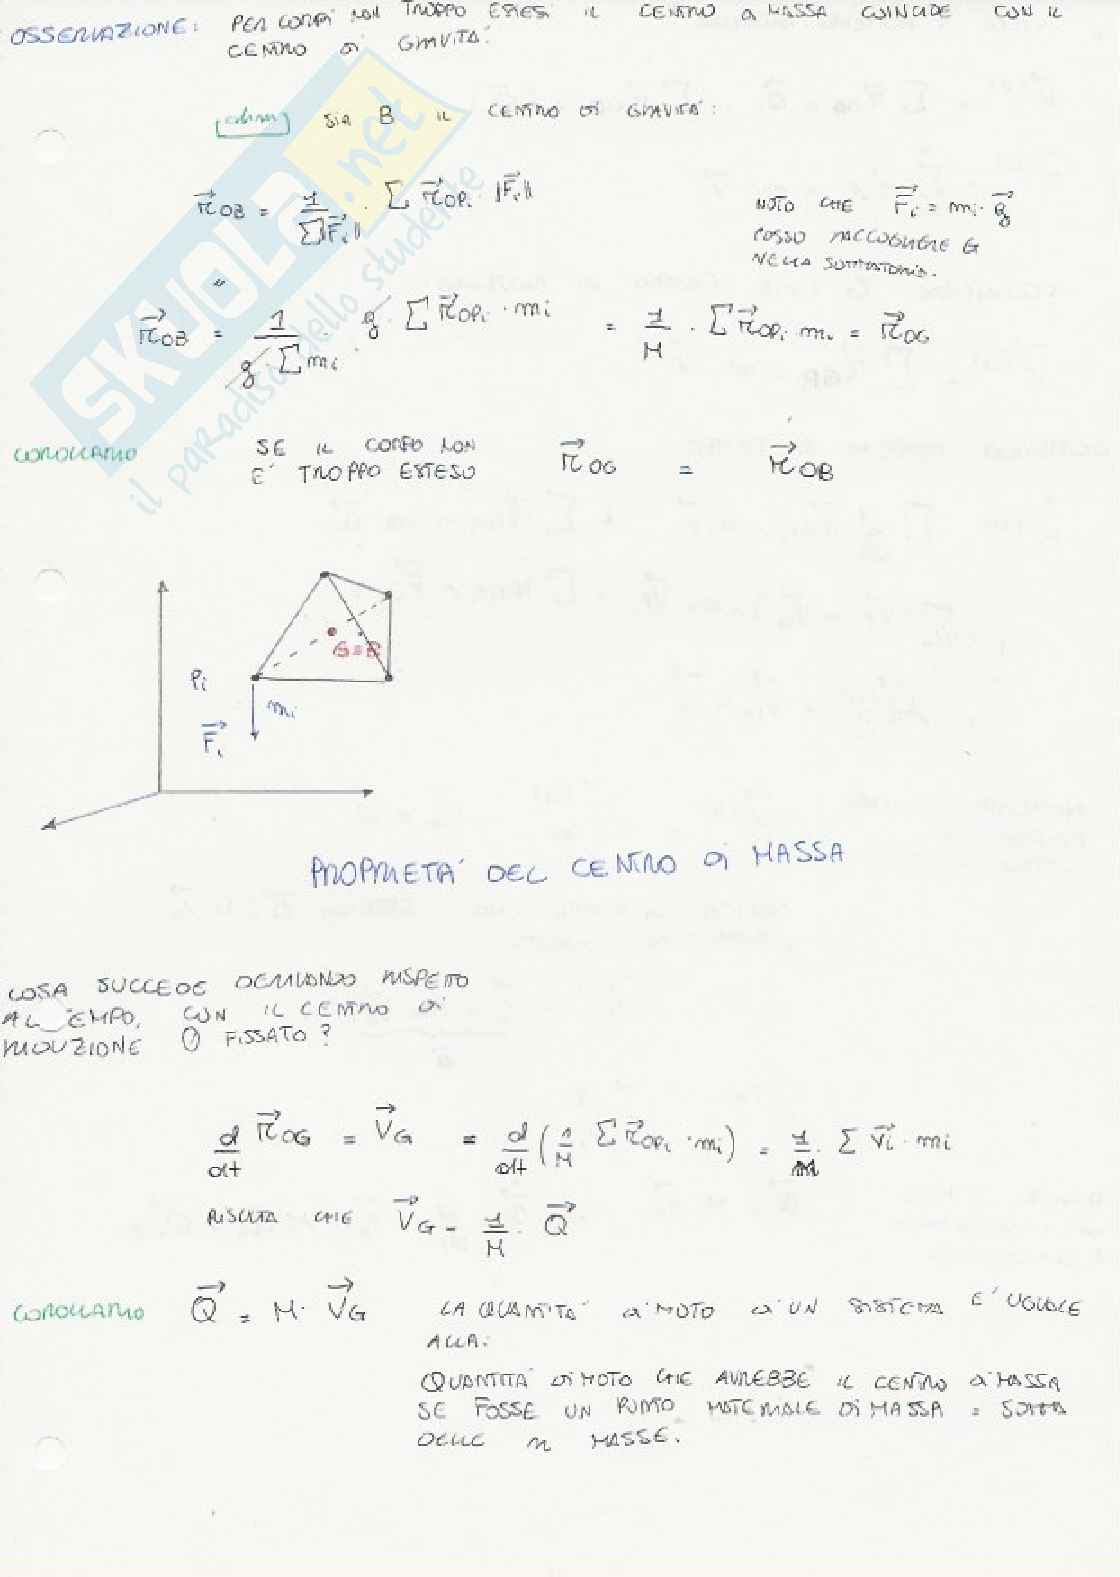 OSSERVAZIONE: PER CORPI NON TROPPO ESTESI IL CENTRO DI MASSA COINCIDE CON IL
CENTRO DI GRAVITA'.
dim SIA B IL CENTRO DI GRAVITA':
r⃗OB = 1/Σ‖F⃗i‖ · Σ r⃗OPi · ‖F⃗i‖
NOTO CHE F⃗i = mi · g⃗
POSSO RACCOGLIERE G
NELLA SOMMATORIA.
"
r⃗OB = 1/(g · Σ mi) · g · Σ r⃗OPi · mi = 1/M · Σ r⃗OPi · mi = r⃗OG
COROLLARIO SE IL CORPO NON
E' TROPPO ESTESO r⃗OG = r⃗OB
G≡B
Pi
mi
F⃗i
PROPRIETA' DEL CENTRO DI MASSA
COSA SUCCEDE DERIVANDO RISPETTO
AL TEMPO, CON IL CENTRO DI
RIDUZIONE O FISSATO?
d/dt r⃗OG = V⃗G = d/dt (1/M Σ r⃗OPi · mi) = 1/M · Σ v⃗i · mi
RISULTA CHE V⃗G = 1/M · Q⃗
COROLLARIO Q⃗ = M · V⃗G LA QUANTITA' DI MOTO DI UN SISTEMA E' UGUALE
ALLA:
QUANTITA' DI MOTO CHE AVREBBE IL CENTRO DI MASSA
SE FOSSE UN PUNTO MATERIALE DI MASSA = SOMMA
DELLE n MASSE.
SKUOLA.net
il paradiso dello studente